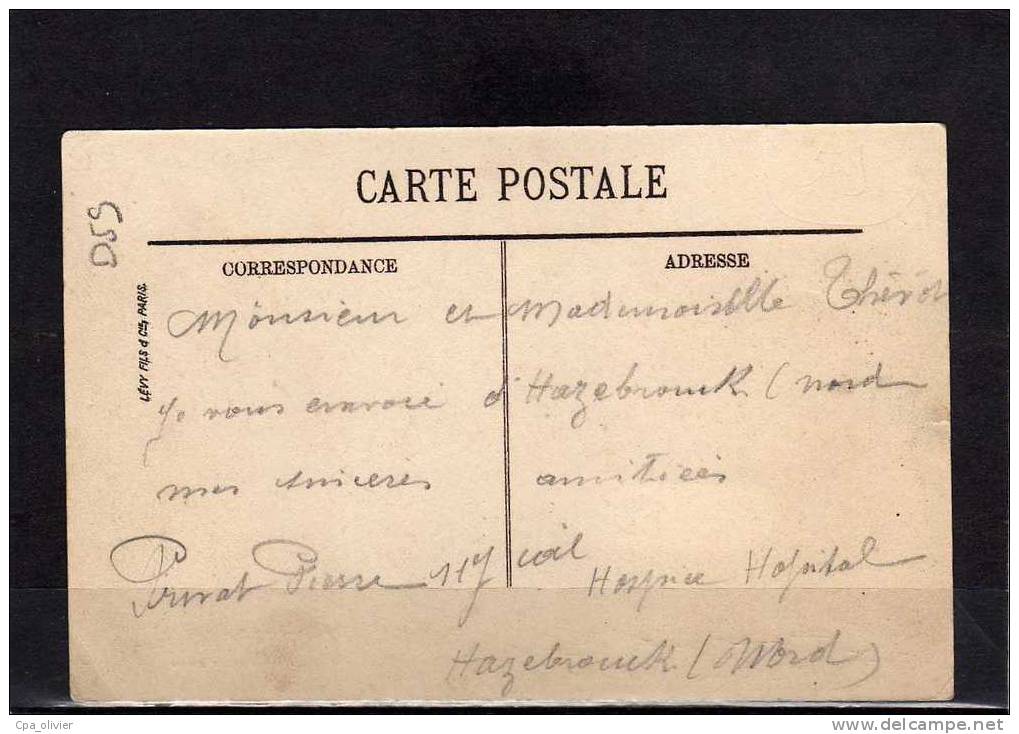 CARTE POSTALE
D59
CORRESPONDANCE
ADRESSE
LÉVY FILS & Cie, PARIS.
Monsieur et Mademoiselle
Je vous envoie d'Hazebrouck (nord
mes sincères amitiées
Pierre
Hospice Hopital
Hazebrouck (Nord)
Cpa_olivier
www.delcampe.net